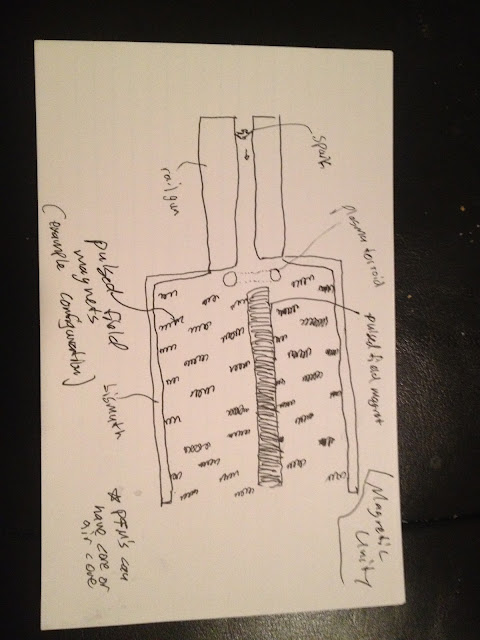 Magnetic
Unity
spark
railgun
plasma toiroid
pulsed field magnet
pulsed field
magnets
(example configuration)
bismuth
* PFM's can
have core or
air core